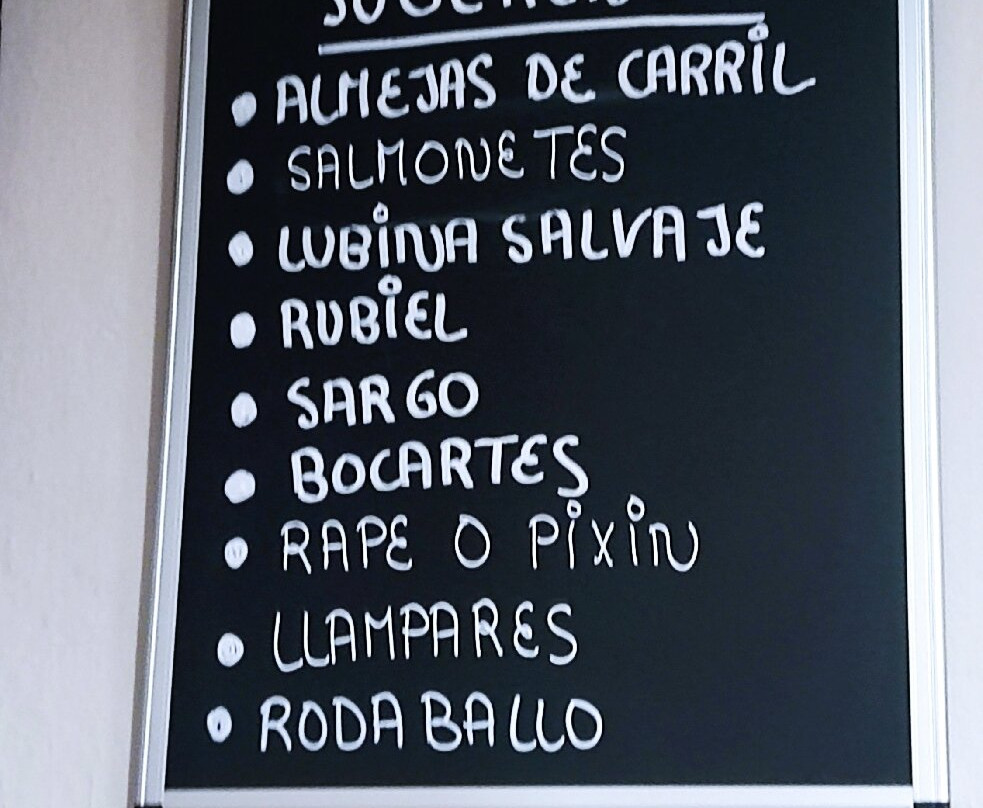 • ALMEJAS DE CARRIL
• SALMONETES
• LUBINA SALVAJE
• RUBIEL
• SARGO
• BOCARTES
• RAPE O PIXIN
• LLAMPARES
• RODABALLO